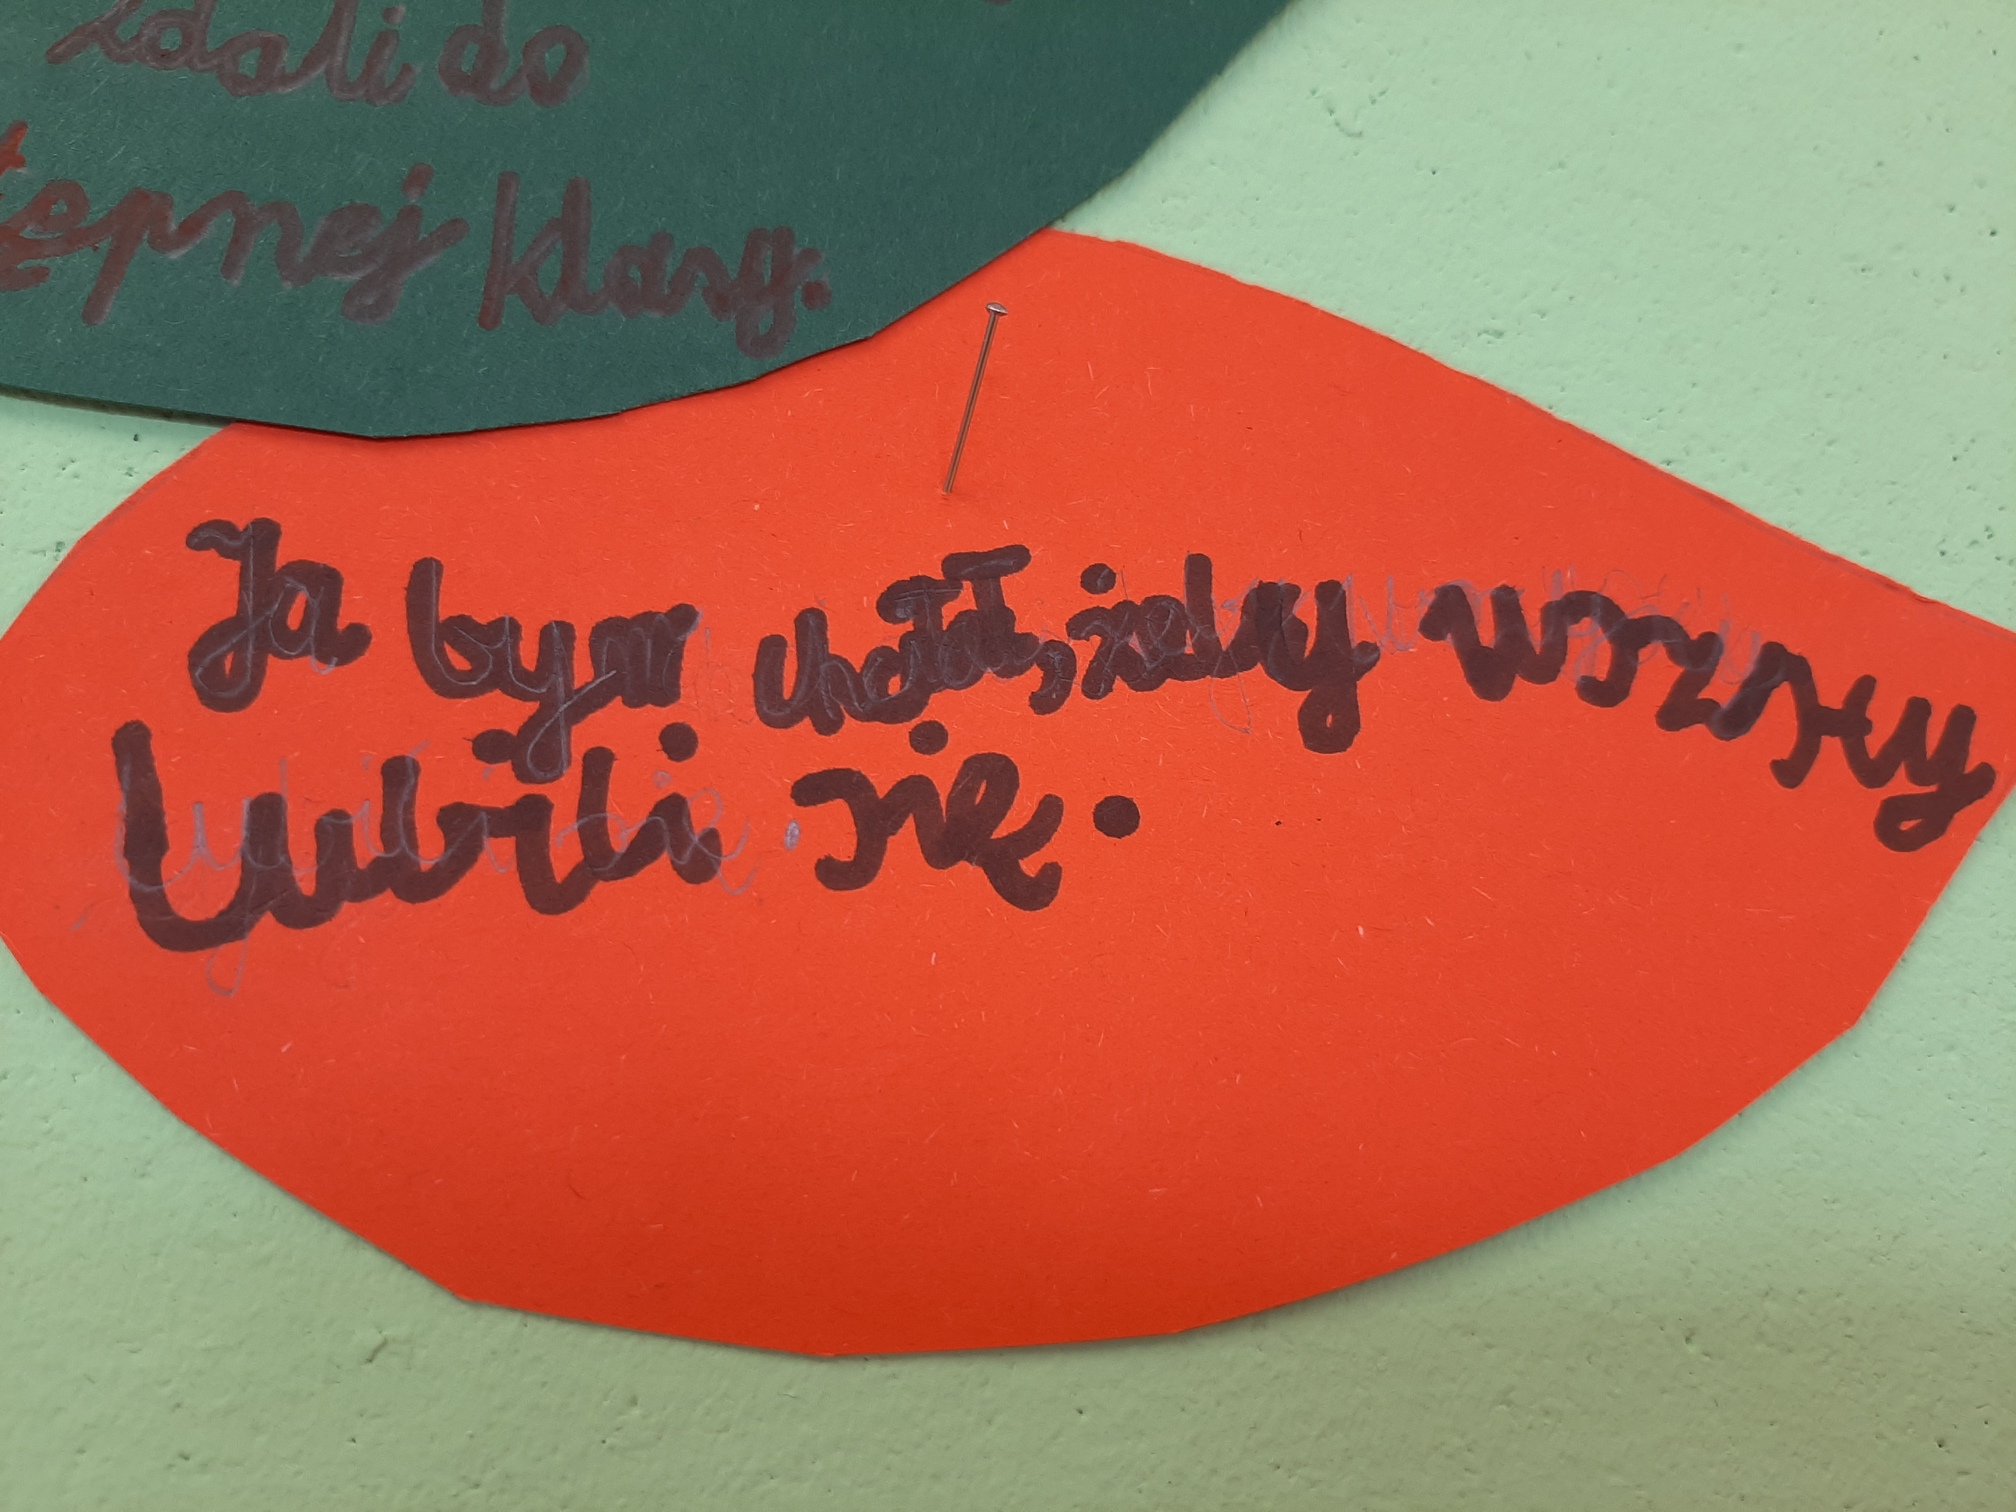 zdali do
tępnej klasy.
Ja bym chciał, żeby wszyscy
lubili się.